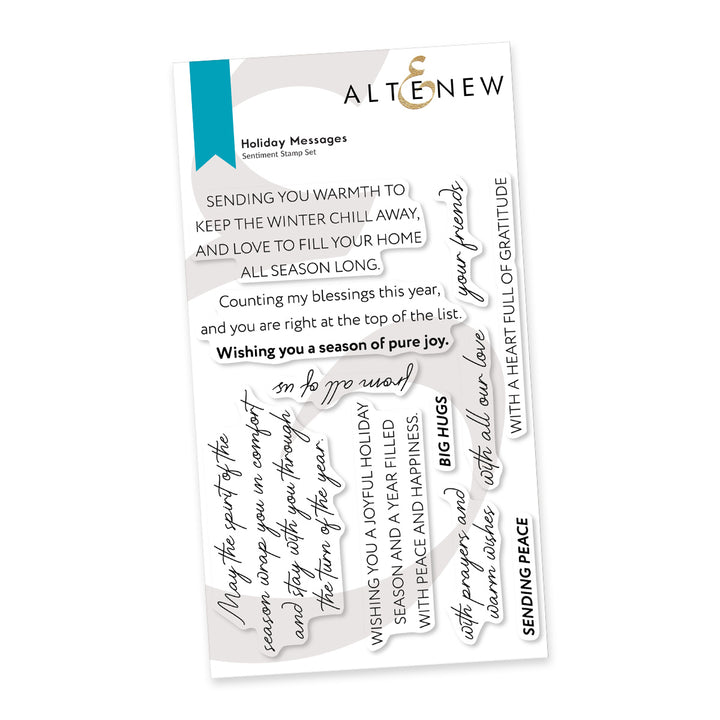 ALTENEW
Holiday Messages
Sentiment Stamp Set
SENDING YOU WARMTH TO
KEEP THE WINTER CHILL AWAY,
AND LOVE TO FILL YOUR HOME
ALL SEASON LONG.
Counting my blessings this year,
and you are right at the top of the list.
Wishing you a season of pure joy.
from all of us
your friends
WITH A HEART FULL OF GRATITUDE
May the spirit of the
season wrap you in comfort
and stay with you through
the turn of the year.
WISHING YOU A JOYFUL HOLIDAY
SEASON AND A YEAR FILLED
WITH PEACE AND HAPPINESS.
BIG HUGS
with all our love
with prayers and
warm wishes
SENDING PEACE